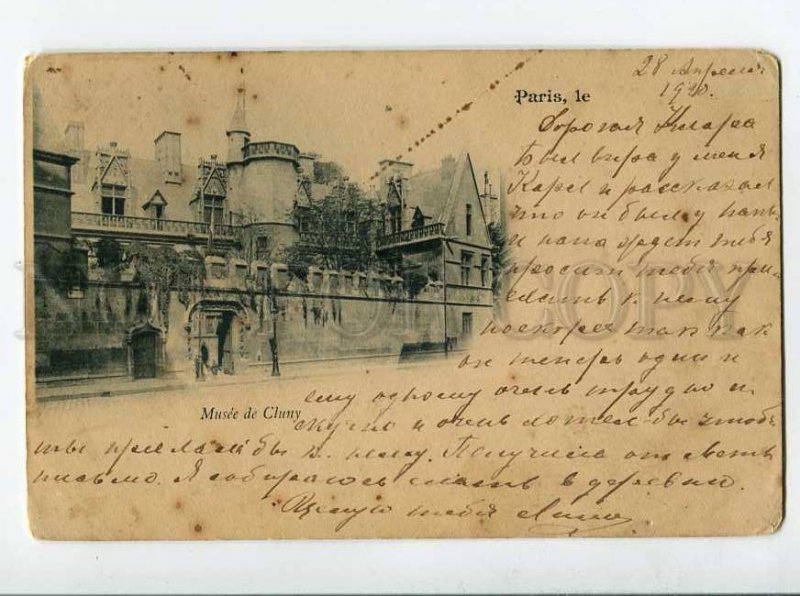 28 Апреля
1910.
Paris, le
Дорогая Клара
Был вчера у меня
Карл и рассказал
что он был у папы
и папа ждет тебя
просит тебя при-
ехать к нему
поскорее так как
он теперь один и
ему одному очень трудно и
скучно и очень хотел-бы чтобы
ты приехала бы к нему. Получила от Светы
письмо. Я собираюсь ехать в деревню.
Целую тебя
Musée de Cluny